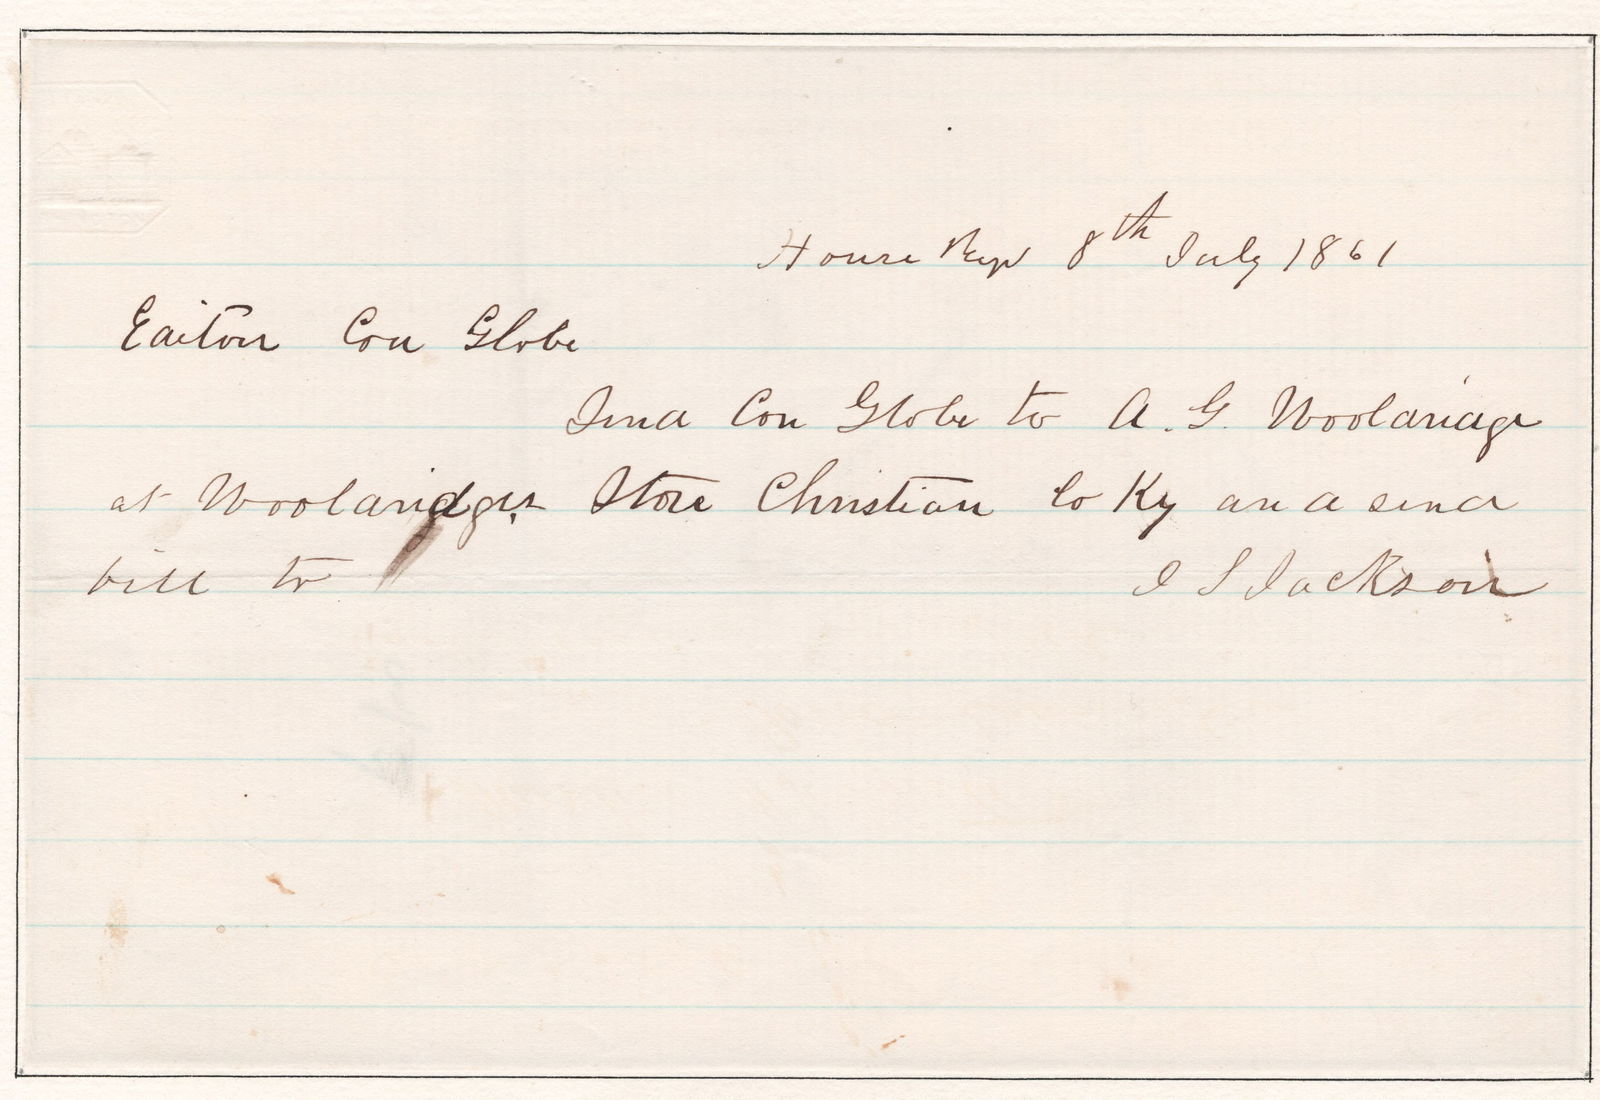 House Rep 8th July 1861
Editor Con Globe
Send Con Globe to A. G. Wooldridge
at Wooldridges Store Christian Co Ky and send
bill to J S Jackson